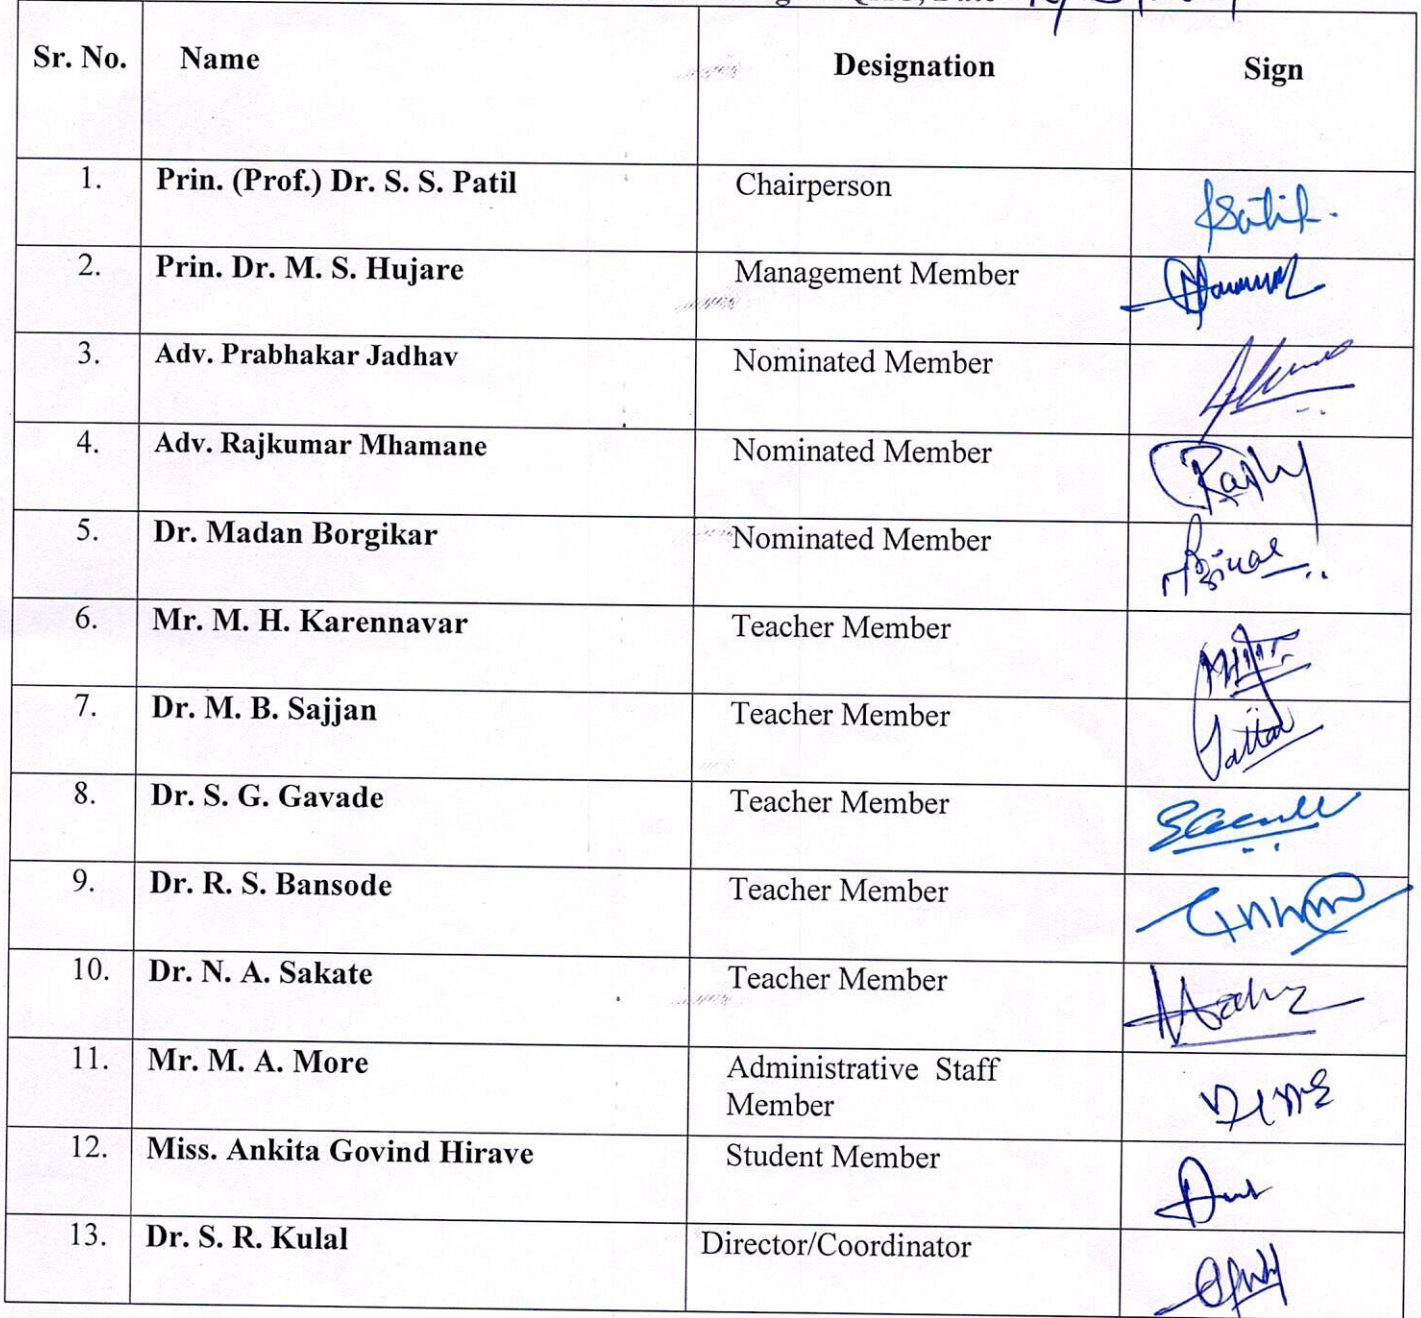 Date
Sr. No. Name Designation Sign
1. Prin. (Prof.) Dr. S. S. Patil Chairperson
2. Prin. Dr. M. S. Hujare Management Member
3. Adv. Prabhakar Jadhav Nominated Member
4. Adv. Rajkumar Mhamane Nominated Member
5. Dr. Madan Borgikar Nominated Member
6. Mr. M. H. Karennavar Teacher Member
7. Dr. M. B. Sajjan Teacher Member
8. Dr. S. G. Gavade Teacher Member
9. Dr. R. S. Bansode Teacher Member
10. Dr. N. A. Sakate Teacher Member
11. Mr. M. A. More Administrative Staff
Member
12. Miss. Ankita Govind Hirave Student Member
13. Dr. S. R. Kulal Director/Coordinator